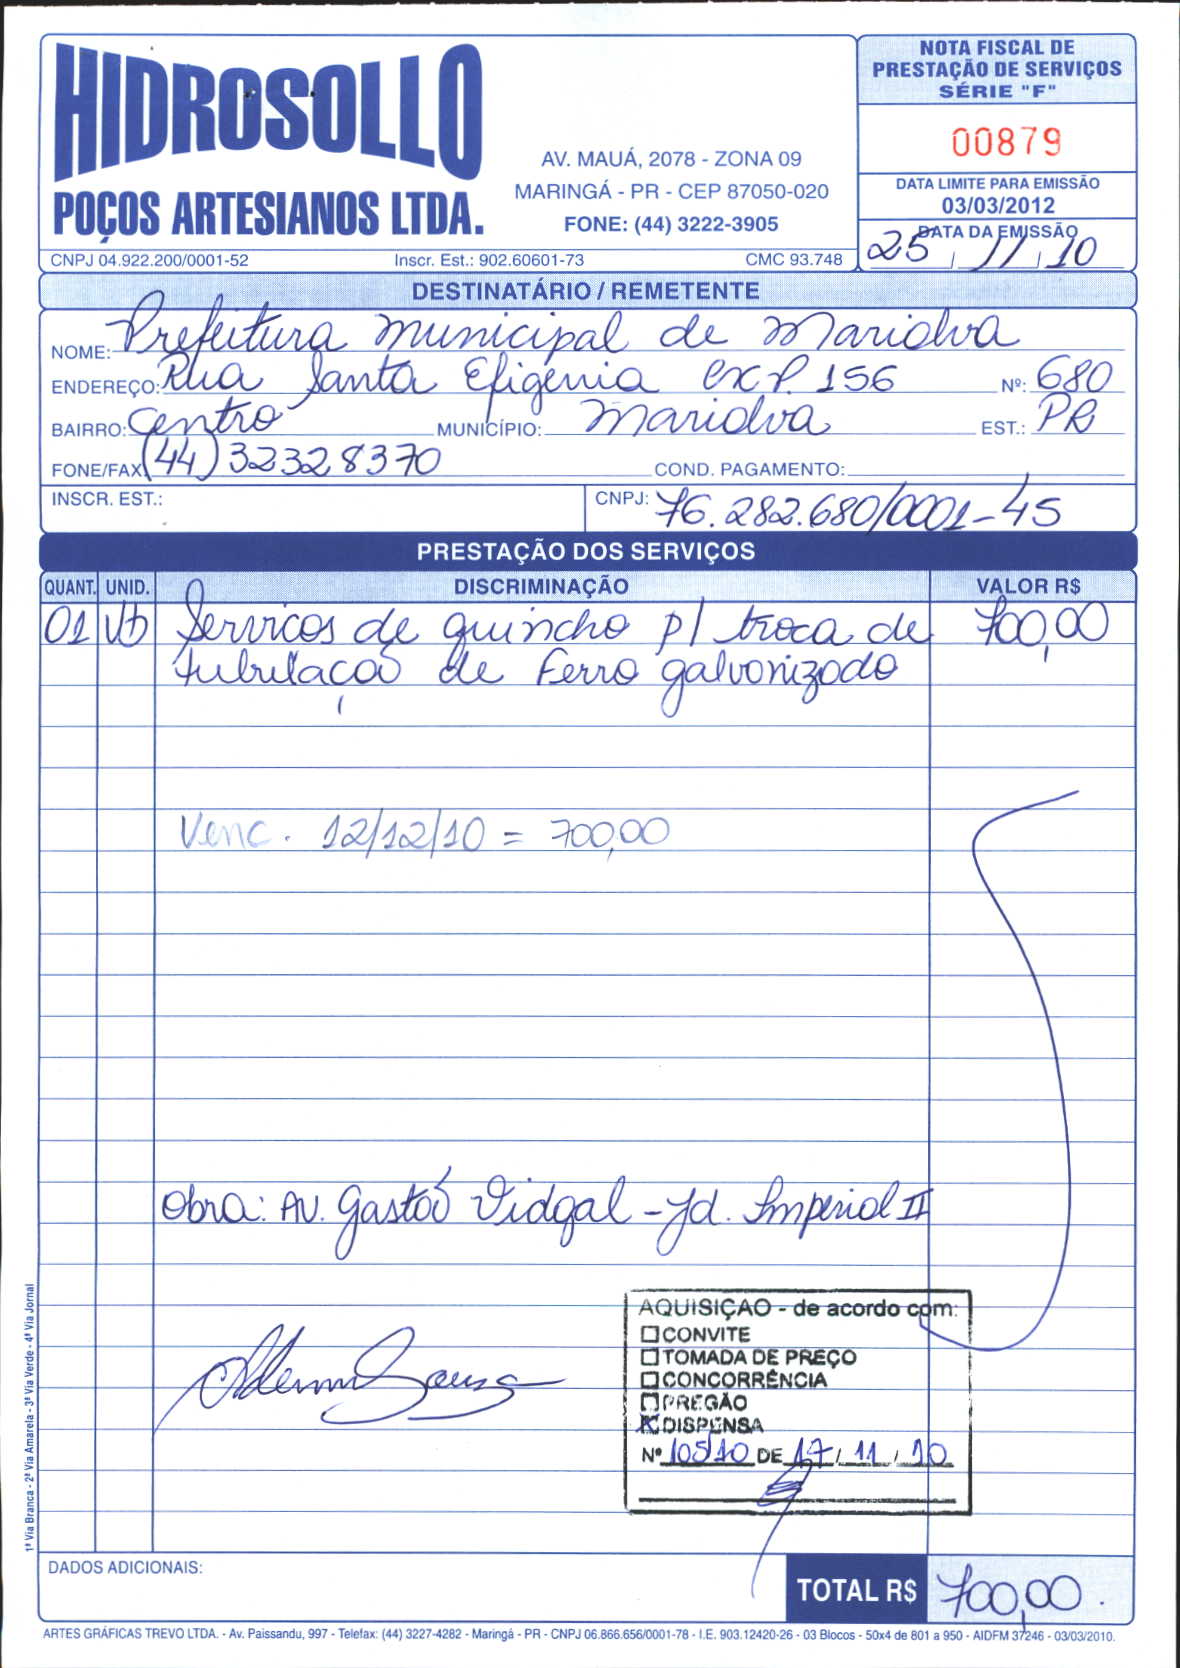 HIDROSOLLO
POÇOS ARTESIANOS LTDA.
AV. MAUÁ, 2078 - ZONA 09
MARINGÁ - PR - CEP 87050-020
FONE: (44) 3222-3905
CNPJ 04.922.200/0001-52 Inscr. Est.: 902.60601-73 CMC 93.748
NOTA FISCAL DE
PRESTAÇÃO DE SERVIÇOS
SÉRIE "F"
00879
DATA LIMITE PARA EMISSÃO
03/03/2012
DATA DA EMISSÃO
25 / 11 / 10
DESTINATÁRIO / REMETENTE
NOME: Prefeitura Municipal de Marialva
ENDEREÇO: Rua Santa Efigenia CxP. 156 Nº: 680
BAIRRO: Centro MUNICÍPIO: Marialva EST.: PR
FONE/FAX: (44) 32328370 COND. PAGAMENTO:
INSCR. EST.: CNPJ: 76.282.680/0001-45
PRESTAÇÃO DOS SERVIÇOS
QUANT. UNID. DISCRIMINAÇÃO VALOR R$
01 Vb Servicos de guincho p/ troca de 700,00
tubulação de Ferro galvonizado
Venc. 12/12/10 = 700,00
Obra: Av. Gastão Vidgal - Jd. Imperial II
AQUISIÇAO - de acordo com:
CONVITE
TOMADA DE PREÇO
CONCORRÊNCIA
PREGÃO
X DISPENSA
Nº 105/10 DE 17 / 11 / 10
DADOS ADICIONAIS:
TOTAL R$ 700,00.
1ª Via Branca - 2ª Via Amarela - 3ª Via Verde - 4ª Via Jornal
ARTES GRÁFICAS TREVO LTDA. - Av. Paissandu, 997 - Telefax: (44) 3227-4282 - Maringá - PR - CNPJ 06.866.656/0001-78 - I.E. 903.12420-26 - 03 Blocos - 50x4 de 801 a 950 - AIDFM 37246 - 03/03/2010.